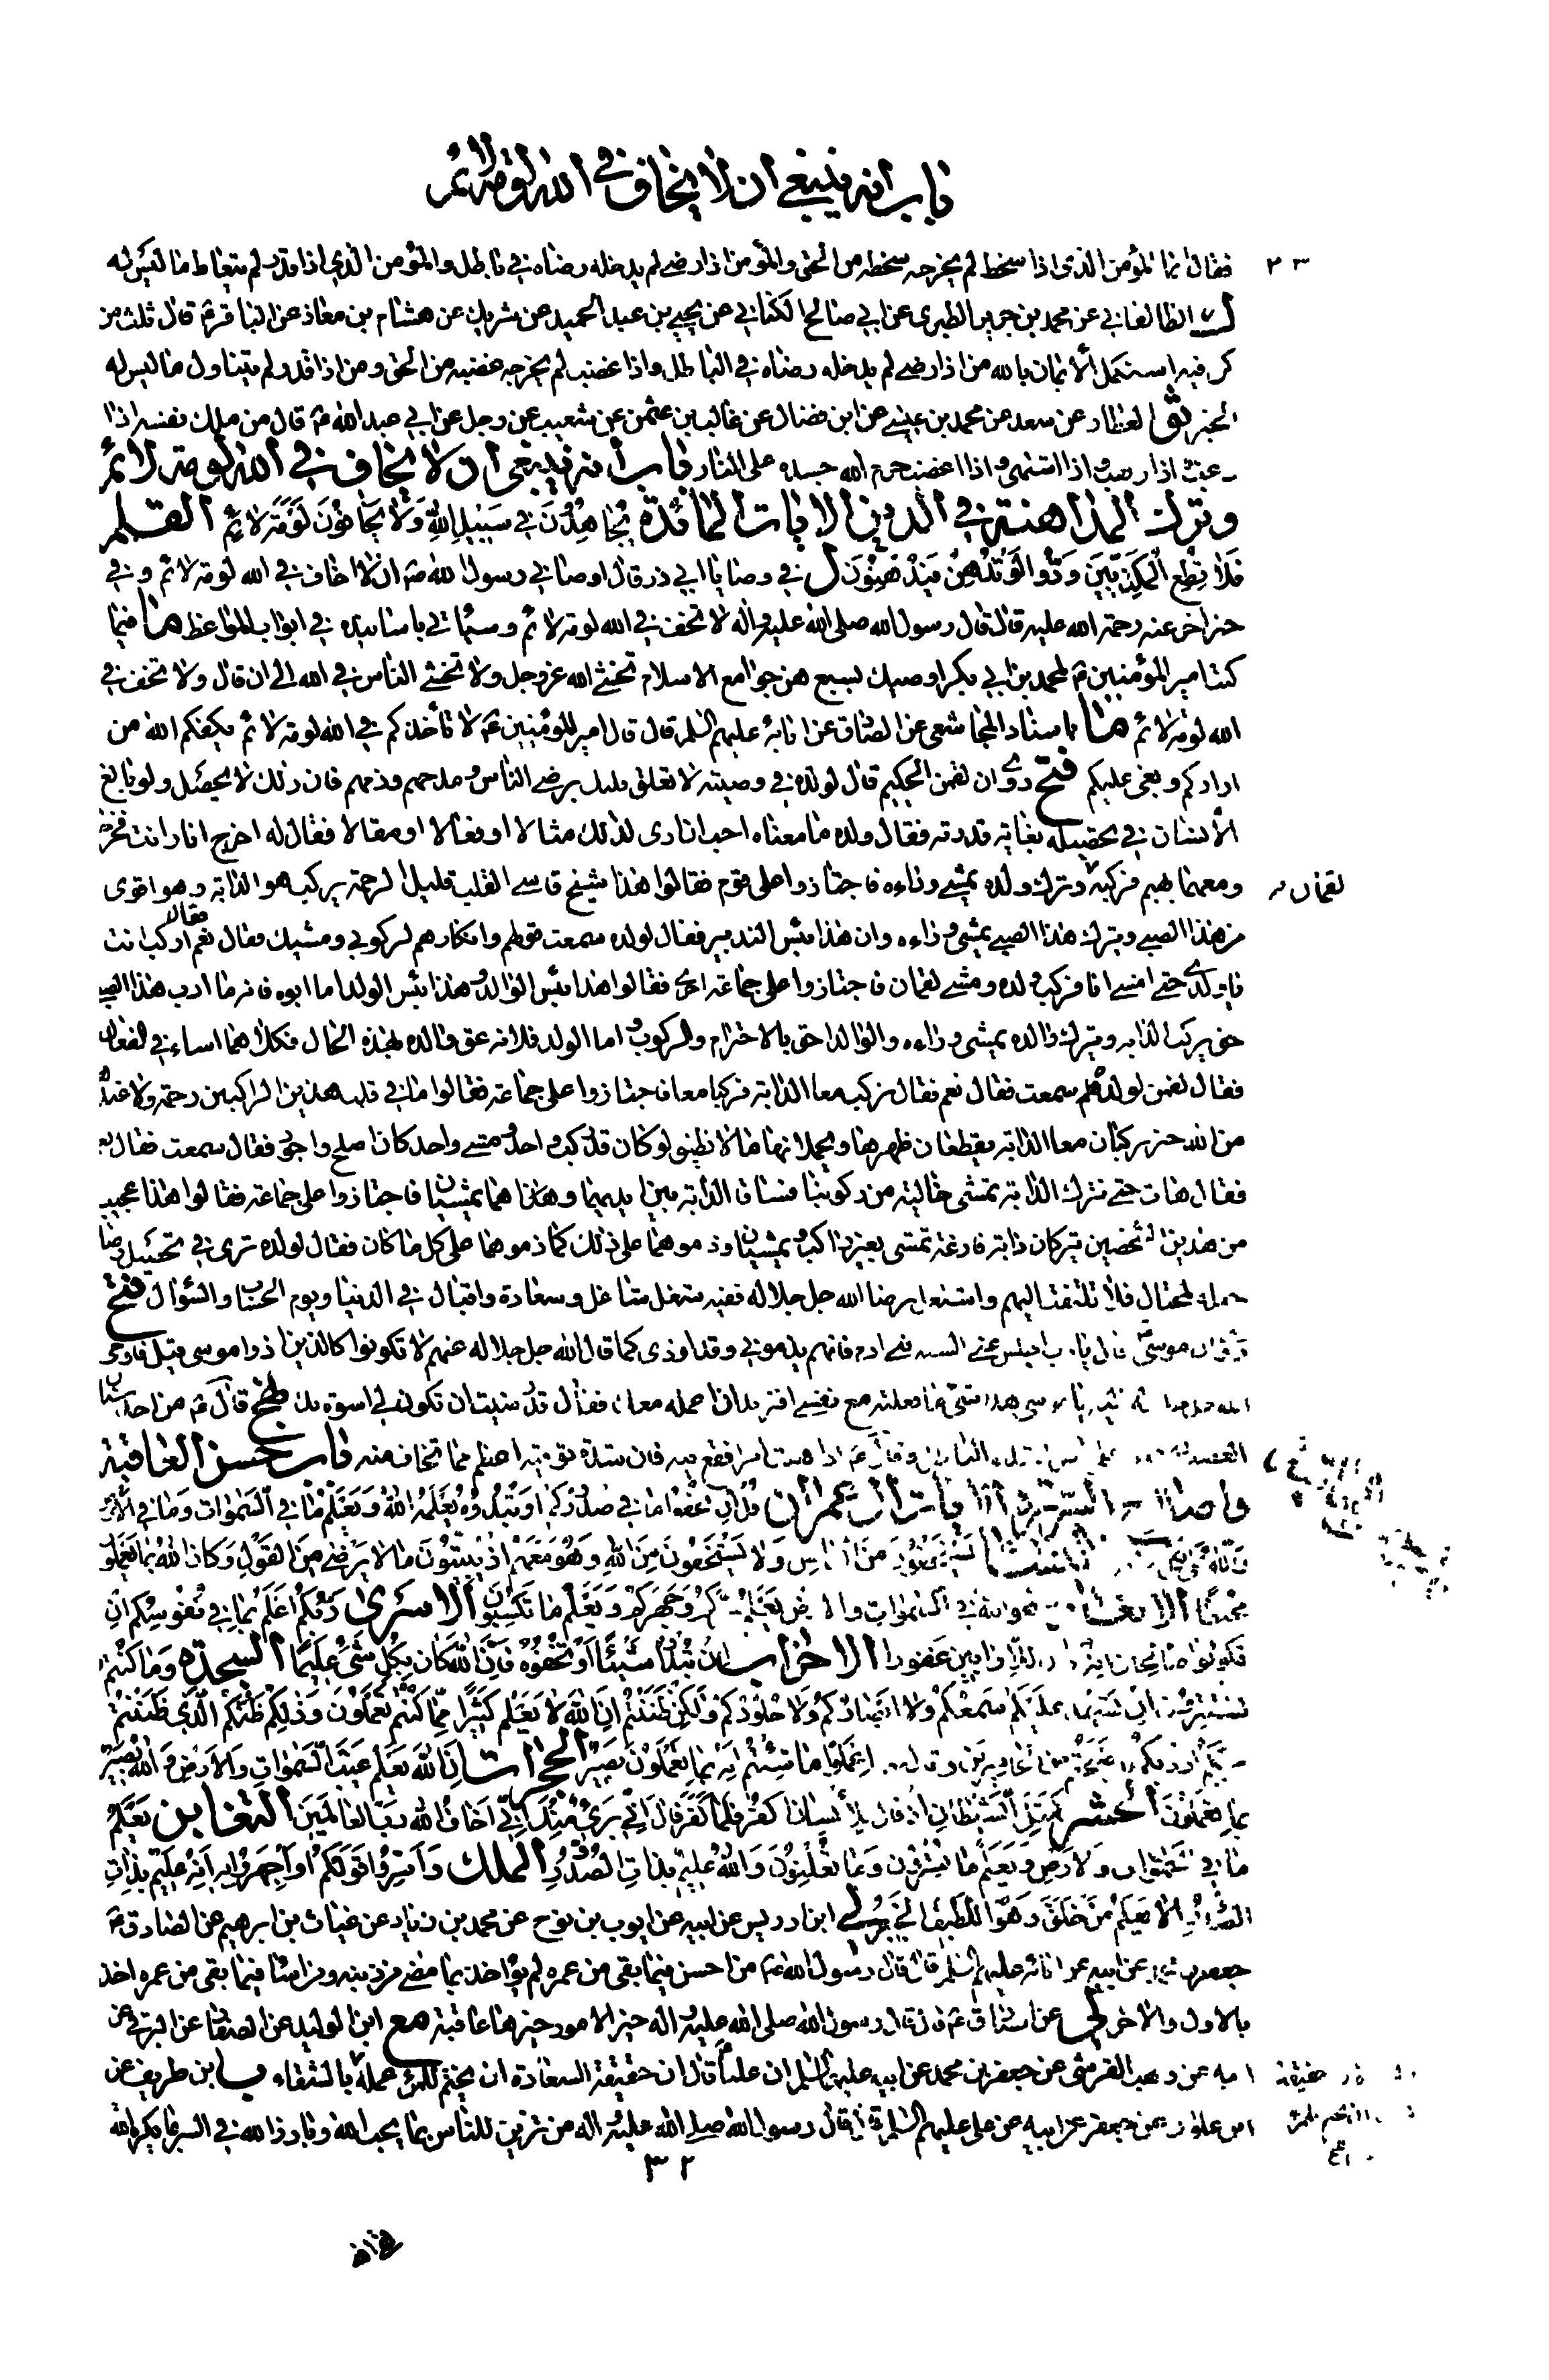 باب انه ينبغي ان لا يخاف في الله لومة لائم
٢٣
فقال انما المؤمن الذى اذا سخط لم يخرجه سخطه من الحق والمؤمن اذا رضى لم يدخله رضاه في باطل والمؤمن الذي اذا قدر لم يتعاط ما ليس له
ل الطالقاني عن محمد بن جرير الطبرى عن ابي صالح الكناني عن يحيى بن عبد الحميد عن شريك عن هشام بن معاذ عن الباقر ع قال ثلث من
كن فيه استكمل الايمان بالله من اذا رضى لم يدخله رضاه في الباطل واذا غضب لم يخرجه غضبه من الحق ومن اذا قدر لم يتناول ما ليس له
الخبر ثو العطار عن سعد عن محمد بن عيسى عن ابن فضال عن غالب بن عثمن عن شعيب عن رجل عن ابي عبد الله ع قال من ملك نفسه اذا
رغب واذا رهب واذا اشتهى واذا غضب حرم الله جسده على النار باب انه ينبغي ان لا يخاف في الله لومة لائم
وترك المداهنة في الدين الايات المائدة يُجَاهِدُونَ في سَبِيلِ اللهِ وَلَا يَخَافُونَ لَوْمَةَ لَائِمٍ القلم
فَلَا تُطِعِ الْمُكَذِّبِينَ وَدُّوا لَوْ تُدْهِنُ فَيُدْهِنُونَ ل في وصايا ابي ذر قال اوصاني رسول الله ص ان لا اخاف في الله لومة لائم وفي
خبر اخر عنه رحمة الله عليه قال قال رسول الله صلى الله عليه واله لا تخف في الله لومة لائم وسيأتي باسانيده في ابواب المواعظ ما فيما
كتب امير المؤمنين ع لمحمد بن ابي بكر اوصيك بسبع هن جوامع الاسلام تخشى الله عز وجل ولا تخشى الناس في الله الى ان قال ولا تخف في
الله لومة لائم ما باسناد المجاشعى عن الصادق عن ابائه عليهم السلم قال قال امير المؤمنين ع لا تأخذكم في الله لومة لائم يكفكم الله من
ارادكم وبغى عليكم فتح روى ان لقمن الحكيم قال لولده في وصيته لا تعلق قلبك برضى الناس ومدحهم وذمهم فان ذلك لا يحصل ولو بالغ
الأنسان في تحصيله بغاية قدرته فقال ولده ما معناه احب ان ارى لذلك مثالا او فعالا او مقالا فقال له اخرج انا وانت فخرجا
ومعهما بهيم فركبه وترك ولده يمشى وراءه فاجتازوا على قوم فقالوا هذا شيخ قاسى القلب قليل الرحمة يركب هو الدابة وهو اقوى
لقمان
من هذا الصبي ويترك هذا الصبي يمشى وراءه وان هذا بئس التدبير فقال لولده سمعت قولهم وانكارهم لركوبي ومشيك فقال نعم فقال اركب انت
يا ولدى حتى امشى انا فركب ولده ومشى لقمان فاجتازوا على جماعة اخرى فقالوا هذا بئس الوالد وهذا بئس الولد اما ابوه فانه ما ادب هذا الصبي
حتى يركب الدابة ويترك والده يمشى وراءه والوالد احق بالاحترام والركوب واما الولد فلانه عق والده بهذه الحال فكلاهما اساء في الفعال
فقال لقمن لولده سمعت فقال نعم فقال نركب معا الدابة فركبا معا فاجتازوا على جماعة فقالوا ما في قلب هذين الراكبين رحمة ولا عندهم
من الله خبر يركبان معا الدابة يقطعان ظهرها ويحملانها ما لا تطيق لو كان قد ركب واحد ومشى واحد كان اصلح واجود فقال سمعت فقال نعم
فقال هات حتى نترك الدابة تمشى خالية من ركوبنا فساقا الدابة بين ايديهما وهما يمشيان فاجتازوا على جماعة فقالوا هذا عجيب
من هذين الشخصين يتركان دابة فارغة تمشى بغير راكب ويمشيان وذموهما على ذلك كما ذموهما على كل ما كان فقال لولده ترى في تحصيل رضاهم
حيلة لمحتال فلا تلتفت اليهم واشتغل برضا الله جل جلاله ففيه شغل شاغل وسعادة واقبال في الدنيا ويوم الحساب والسؤال فتح
ان موسى قال يا رب احبس عنى السنة بنى ادم فانهم يذموني وقد اوذى كما قال الله جل جلاله عنهم لا تكونوا كالذين اذوا موسى قيل فاوحى
الله جل جلاله اليه يا موسى هذا شئ ما فعلته مع نفسي افتريد ان اعمله معك فقال قد رضيت ان تكون لي اسوة بك نهج قال ع من احد سنان
الغضب لله قوى على قتل اشداء الباطل وقال ع اذا هبت امرا فقع فيه فان شدة توقيه اعظم مما تخاف منه باب حسن العاقبة
واصلاح السريرة الايات ال عمران قُلْ اِنْ تُخْفُوا مَا فِي صُدُورِكُمْ اَوْ تُبْدُوهُ يَعْلَمْهُ اللهُ وَيَعْلَمُ مَا فِي السَّمٰوَاتِ وَمَا فِي الْاَرْضِ
النساء يَسْتَخْفُونَ مِنَ النَّاسِ وَلَا يَسْتَخْفُونَ مِنَ اللهِ وَهُوَ مَعَهُمْ اِذْ يُبَيِّتُونَ مَا لَا يَرْضٰى مِنَ الْقَوْلِ وَكَانَ اللهُ بِمَا يَعْمَلُونَ
مُحِيطًا الانعام وهو الله في السموات والارض يَعْلَمُ سِرَّكُمْ وَجَهْرَكُمْ وَيَعْلَمُ مَا تَكْسِبُونَ الاسرى رَبُّكُمْ اَعْلَمُ بِمَا فِي نُفُوسِكُمْ اِنْ
تَكُونُوا صَالِحِينَ فَاِنَّهُ كَانَ لِلْاَوَّابِينَ غَفُورًا الاحزاب اِنْ تُبْدُوا شَيْئًا اَوْ تُخْفُوهُ فَاِنَّ اللهَ كَانَ بِكُلِّ شَىْءٍ عَلِيمًا السجدة وَمَا كُنْتُمْ
تَسْتَتِرُونَ اَنْ يَشْهَدَ عَلَيْكُمْ سَمْعُكُمْ وَلَا اَبْصَارُكُمْ وَلَا جُلُودُكُمْ وَلٰكِنْ ظَنَنْتُمْ اَنَّ اللهَ لَا يَعْلَمُ كَثِيرًا مِمَّا تَعْمَلُونَ وَذٰلِكُمْ ظَنُّكُمُ الَّذِي ظَنَنْتُمْ
بِرَبِّكُمْ اَرْدٰيكُمْ فَاَصْبَحْتُمْ مِنَ الْخَاسِرِينَ وقال اِعْمَلُوا مَا شِئْتُمْ اِنَّهُ بِمَا تَعْمَلُونَ بَصِيرٌ الحجرات اِنَّ اللهَ يَعْلَمُ غَيْبَ السَّمٰوَاتِ وَالْاَرْضِ وَاللهُ بَصِيرٌ
بِمَا تَعْمَلُونَ الحشر كَمَثَلِ الشَّيْطَانِ اِذْ قَالَ لِلْاِنْسَانِ اكْفُرْ فَلَمَّا كَفَرَ قَالَ اِنِّي بَرِىءٌ مِنْكَ اِنِّي اَخَافُ اللهَ رَبَّ الْعَالَمِينَ التغابن يَعْلَمُ
مَا فِي السَّمٰوَاتِ وَالْاَرْضِ وَيَعْلَمُ مَا تُسِرُّونَ وَمَا تُعْلِنُونَ وَاللهُ عَلِيمٌ بِذَاتِ الصُّدُورِ الملك وَاَسِرُّوا قَوْلَكُمْ اَوِ اجْهَرُوا بِهِ اِنَّهُ عَلِيمٌ بِذَاتِ
الصُّدُورِ اَلَا يَعْلَمُ مَنْ خَلَقَ وَهُوَ اللَّطِيفُ الْخَبِيرُ لي ابن ادريس عن ابيه عن ايوب بن نوح عن محمد بن زياد عن غياث بن ابرهيم عن الصادق
جعفر بن محمد عن ابيه عن ابائه عليهم السلم قال قال رسول الله ص من احسن فيما بقى من عمره لم يؤاخذ بما مضى من ذنبه ومن اساء فيما بقى من عمره اخذ
بالاول والاخر لي عن الصادق ع قال قال رسول الله صلى الله عليه واله خير الامور خيرها عاقبة مع ابن الوليد عن الصفار عن البرقي عن
ابيه عن وهب القرشى عن جعفر بن محمد عن ابيه عليهما السلم ان عليا ع قال ان حقيقة السعادة ان يختم للمرء عمله بالسعادة وان حقيقة الشقاء ب ابن طريف عن
ابن علوان عن جعفر عن ابيه عن على عليهم السلم قال قال رسول الله صلى الله عليه واله من تزين للناس بما يحب الله وبارز الله في السر بما يكره الله
٣٢